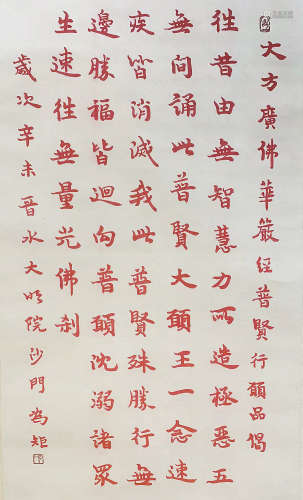 大方廣佛華嚴經普賢行願品偈
往昔由無智慧力所造極惡五
無間誦此普賢大願王一念速
疾皆消滅我此普賢殊勝行無
邊勝福皆迴向普願沈溺諸眾
生速往無量光佛剎
歲次辛未晉水大明院沙門為矩